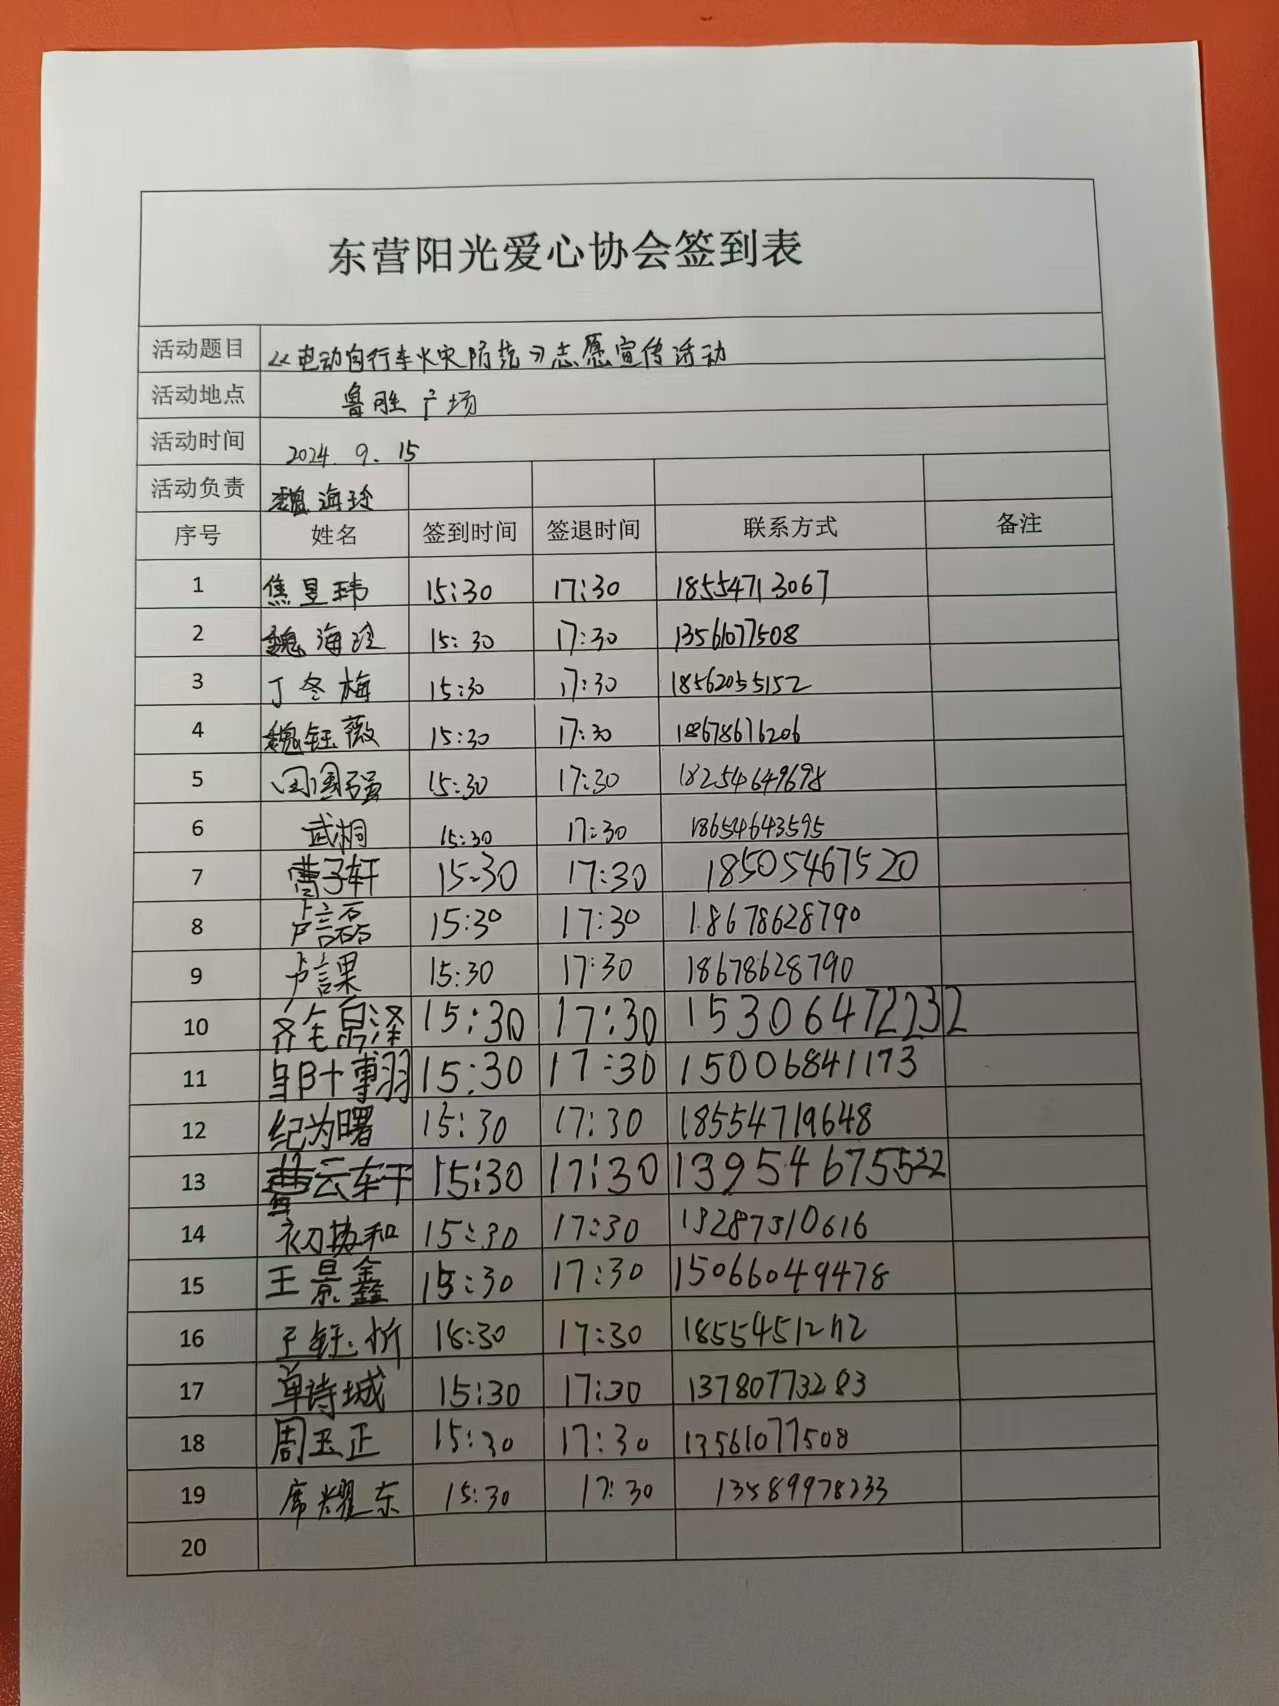 东营阳光爱心协会签到表
活动题目 《电动自行车火灾防范》志愿宣传活动
活动地点 鲁胜广场
活动时间 2024.9.15
活动负责 魏海玲
序号 姓名 签到时间 签退时间 联系方式 备注
1 焦昱玮 15:30 17:30 18554713067
2 魏海玲 15:30 17:30 13561077508
3 丁冬梅 15:30 17:30 18562055152
4 魏钰薇 15:30 17:30 18678676206
5 国强 15:30 17:30 18254649698
6 武桐 15:30 17:30 18654643595
7 曹子轩 15:30 17:30 18505467520
8 卢言磊 15:30 17:30 18678628790
9 卢課 15:30 17:30 18678628790
10 齐 泽 15:30 17:30 15306472232
11 博羽 15:30 17:30 15006841173
12 纪为曙 15:30 17:30 18554719648
13 曹云轩 15:30 17:30 13954675522
14 初协和 15:30 17:30 13287310616
15 王景鑫 15:30 17:30 15066049478
16 王钰忻 16:30 17:30
17 单诗城 15:30 17:30 13780773283
18 周玉正 15:30 17:30 13561077508
19 席耀东 15:30 17:30 13589978233
20